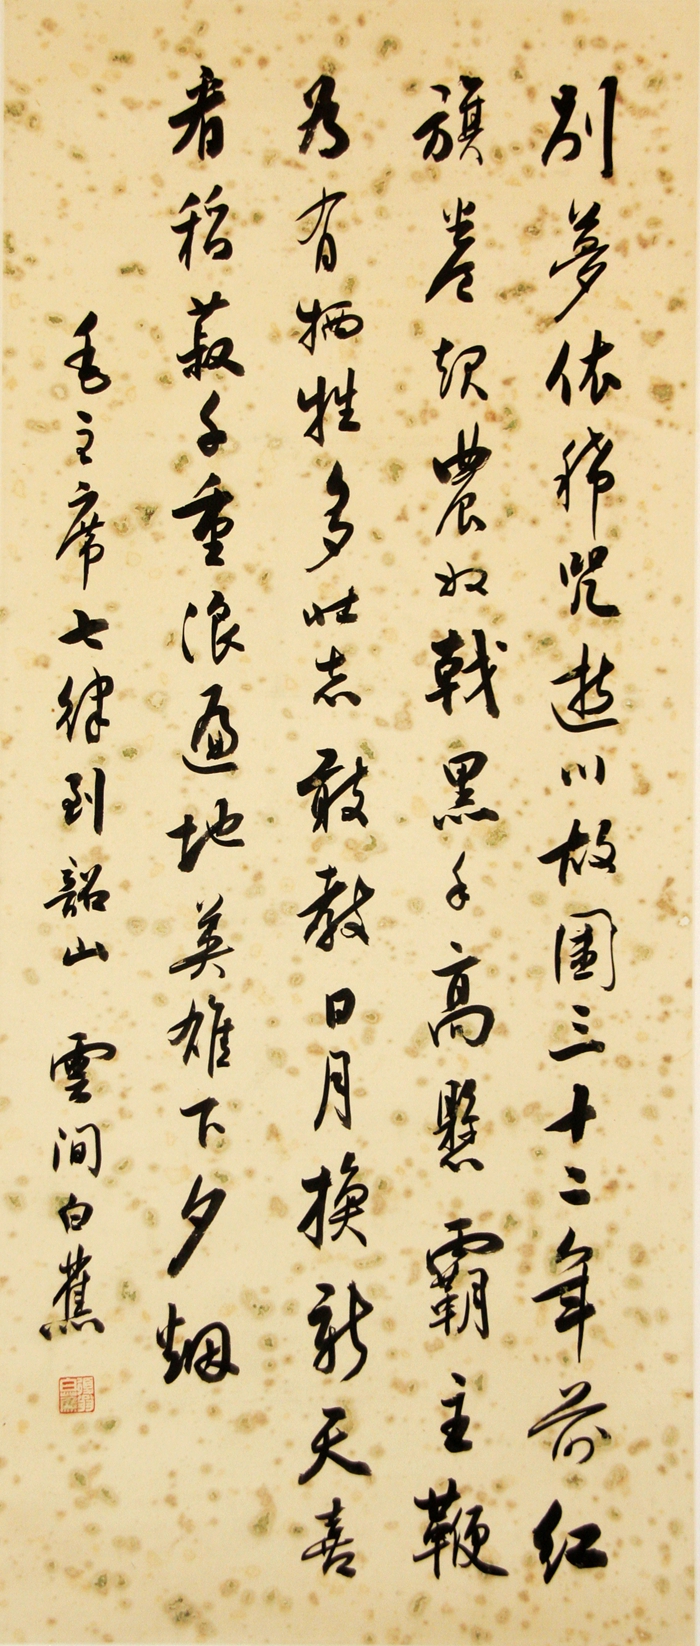 別夢依稀咒逝川故園三十二年前紅
旗卷起農奴戟黑手高懸霸主鞭
為有犧牲多壯志敢教日月換新天喜
看稻菽千重浪遍地英雄下夕煙
毛主席七律到韶山 雲間白蕉